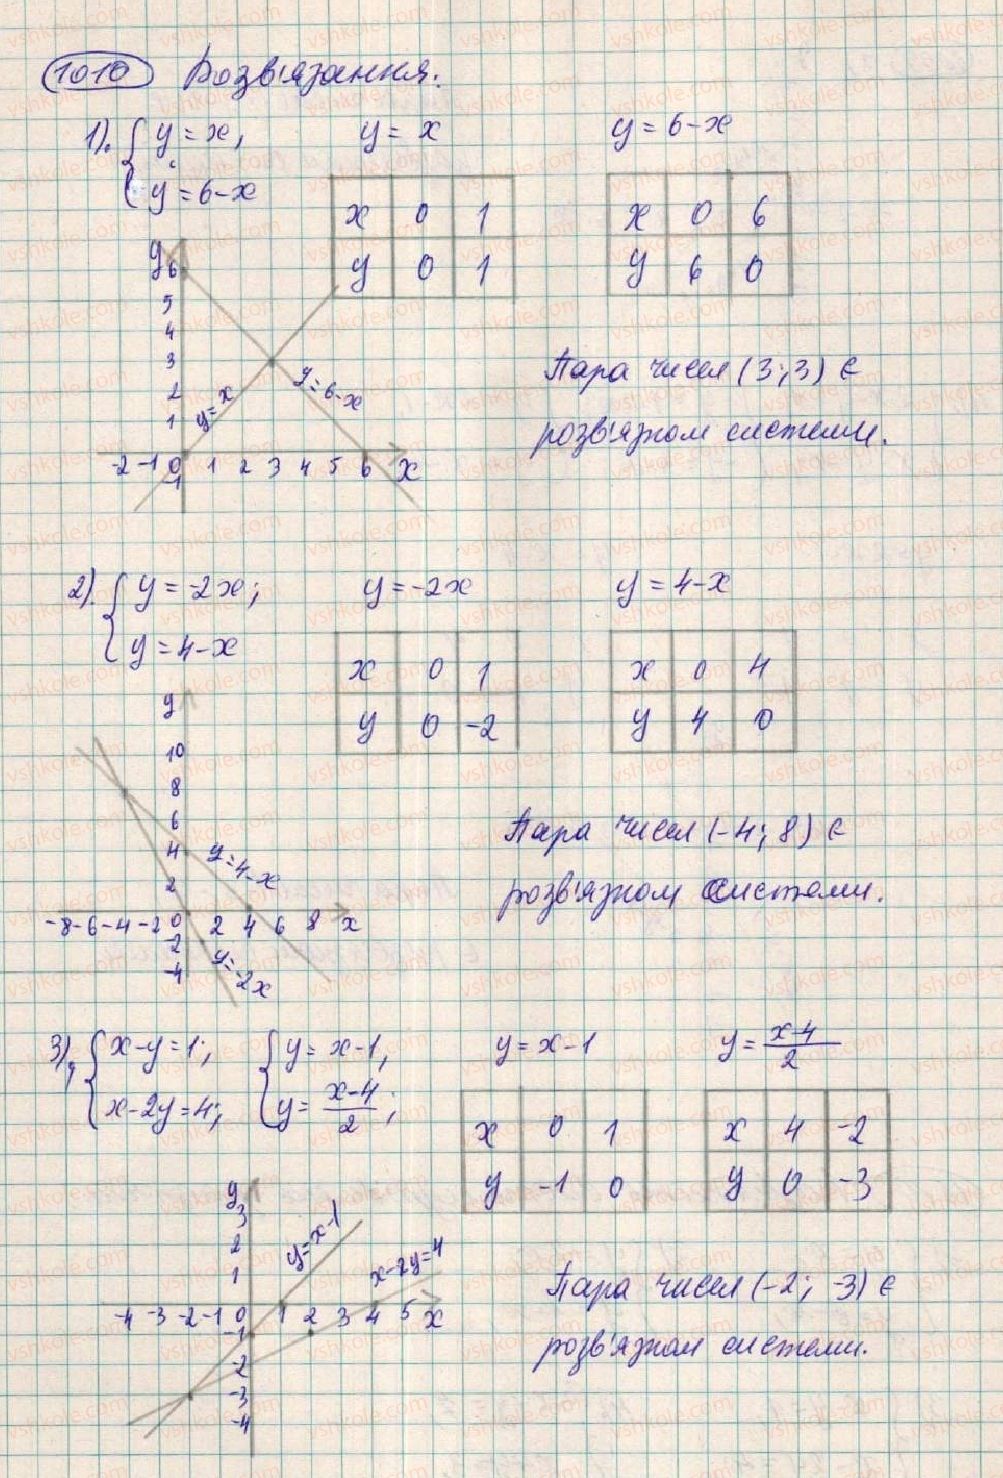 1010 Розв'язання.
1). { y = x, y = x y = 6-x
y = 6-x
x 0 1 x 0 6
y 0 1 y 6 0
y
6
5
4
3
2
1
y = x
y = 6-x
-2 -1 0 1 2 3 4 5 6 x
-1
Пара чисел (3; 3) є
розв'язком системи.
2). { y = -2x; y = -2x y = 4-x
y = 4-x
x 0 1 x 0 4
y 0 -2 y 4 0
y
10
8
6
4
2
y = 4-x
-8 -6 -4 -2 0 2 4 6 8 x
-2
-4
y = -2x
Пара чисел (-4; 8) є
розв'язком системи.
3). { x-y = 1; { y = x-1, y = x-1 y = x-4/2
x-2y = 4; y = x-4/2;
x 0 1 x 4 -2
y -1 0 y 0 -3
y
3
2
1
y = x-1
x-2y = 4
-4 -3 -2 -1 0 1 2 3 4 5 x
-1
-2
-3
-4
Пара чисел (-2; -3) є
розв'язком системи.